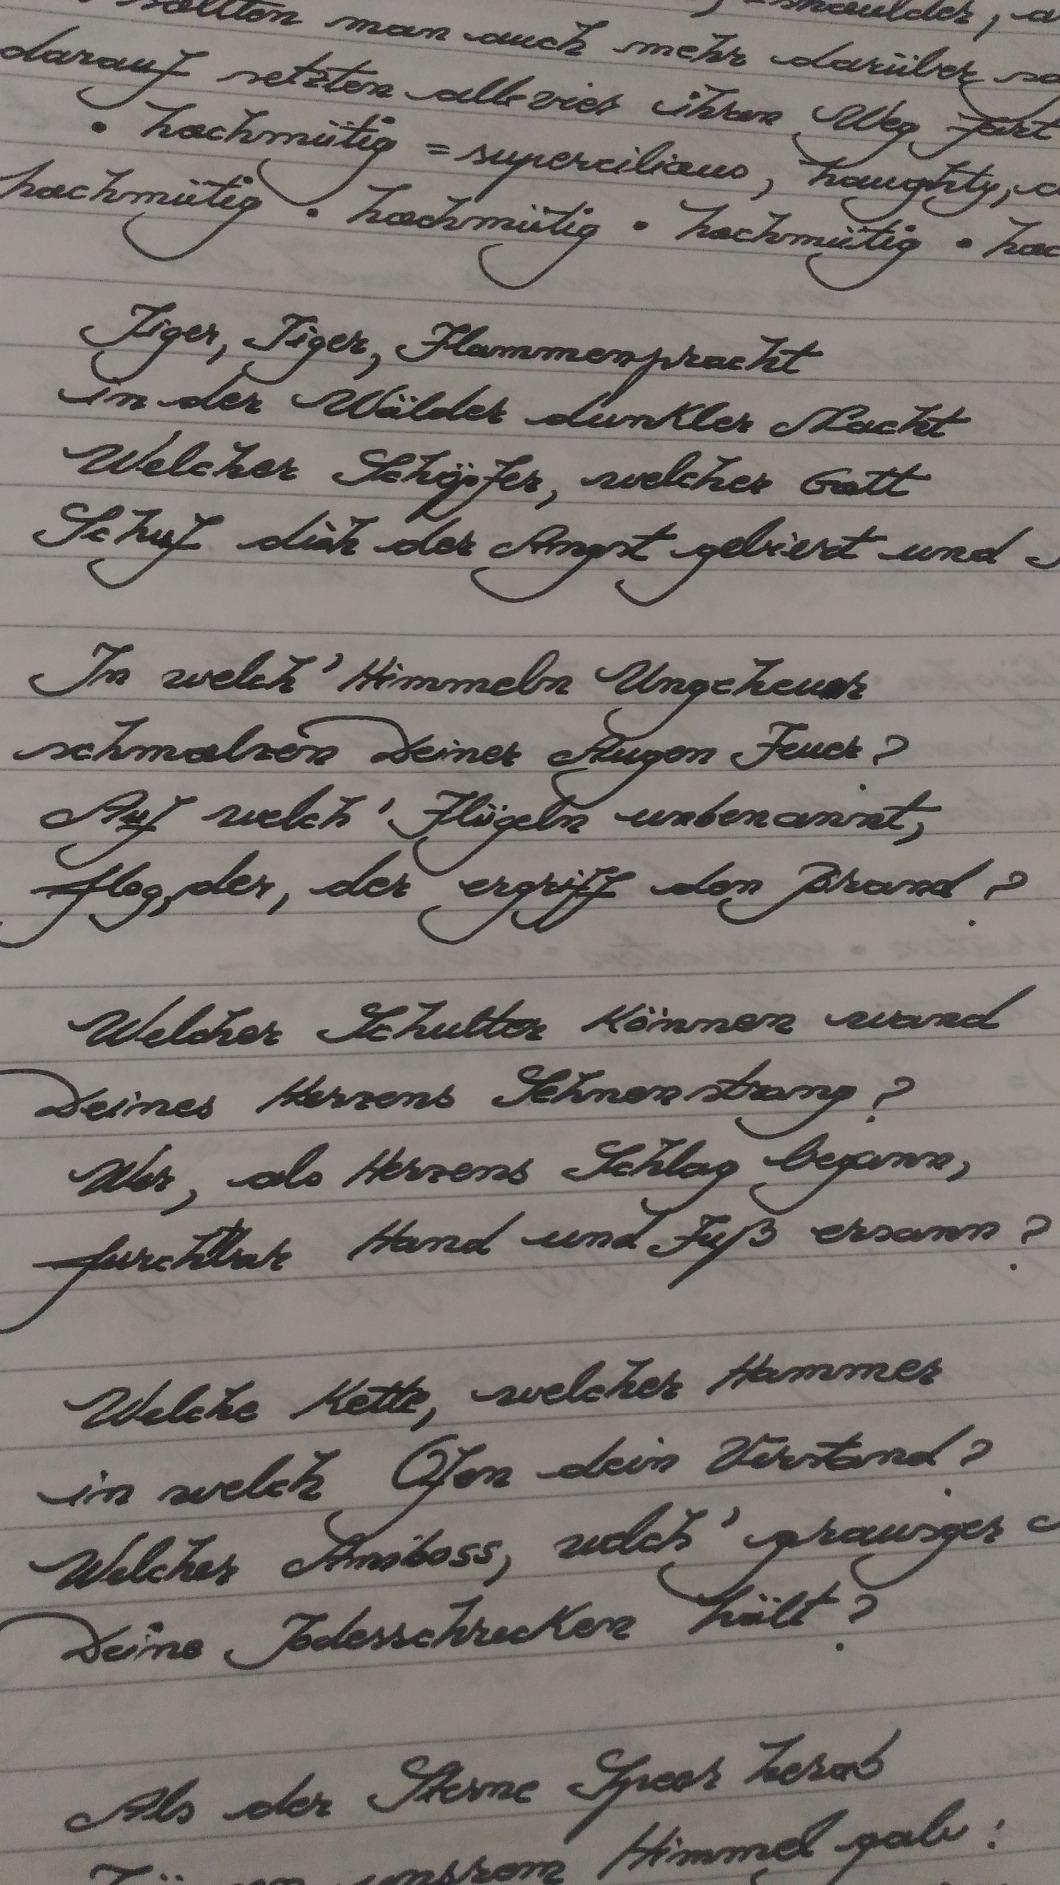 sollten man auch mehr darüber
darauf setzten alle vier ihren Weg fort
• hochmütig = supercilious, haughty,
hochmütig • hochmütig • hochmütig •
Tiger, Tiger, Flammenpracht
in der Wälder dunkler Nacht
Welcher Schöpfer, welcher Gott
Schuf dich der Angst gebiert und
In welch' Himmeln Ungeheuer
schmolzen Deiner Augen Feuer?
Auf welch' Flügeln unbenannt,
flog, der, der ergriff den Brand?
Welcher Schulter Können wand
Deines Herzens Sehnenstrang?
Wer, als Herzens Schlag begann,
furchtbar Hand und Fuß ersann?
Welche Kette, welcher Hammer
in welch Ofen dein Verstand?
Welcher Amboss, welch' grausger
Deine Todesschrecken hält?
Als der Sterne Speer herab
unsrem Himmel gab: